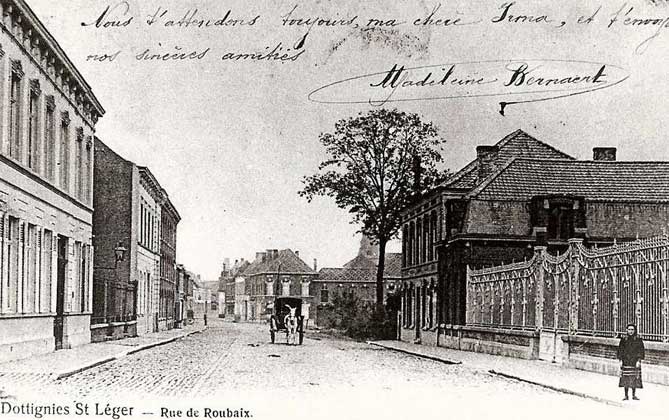 Nous t'attendons toujours, ma chère Irma, et t'envoy
nos sincères amitiés
Madeleine Bernaert
Dottignies St Léger — Rue de Roubaix.